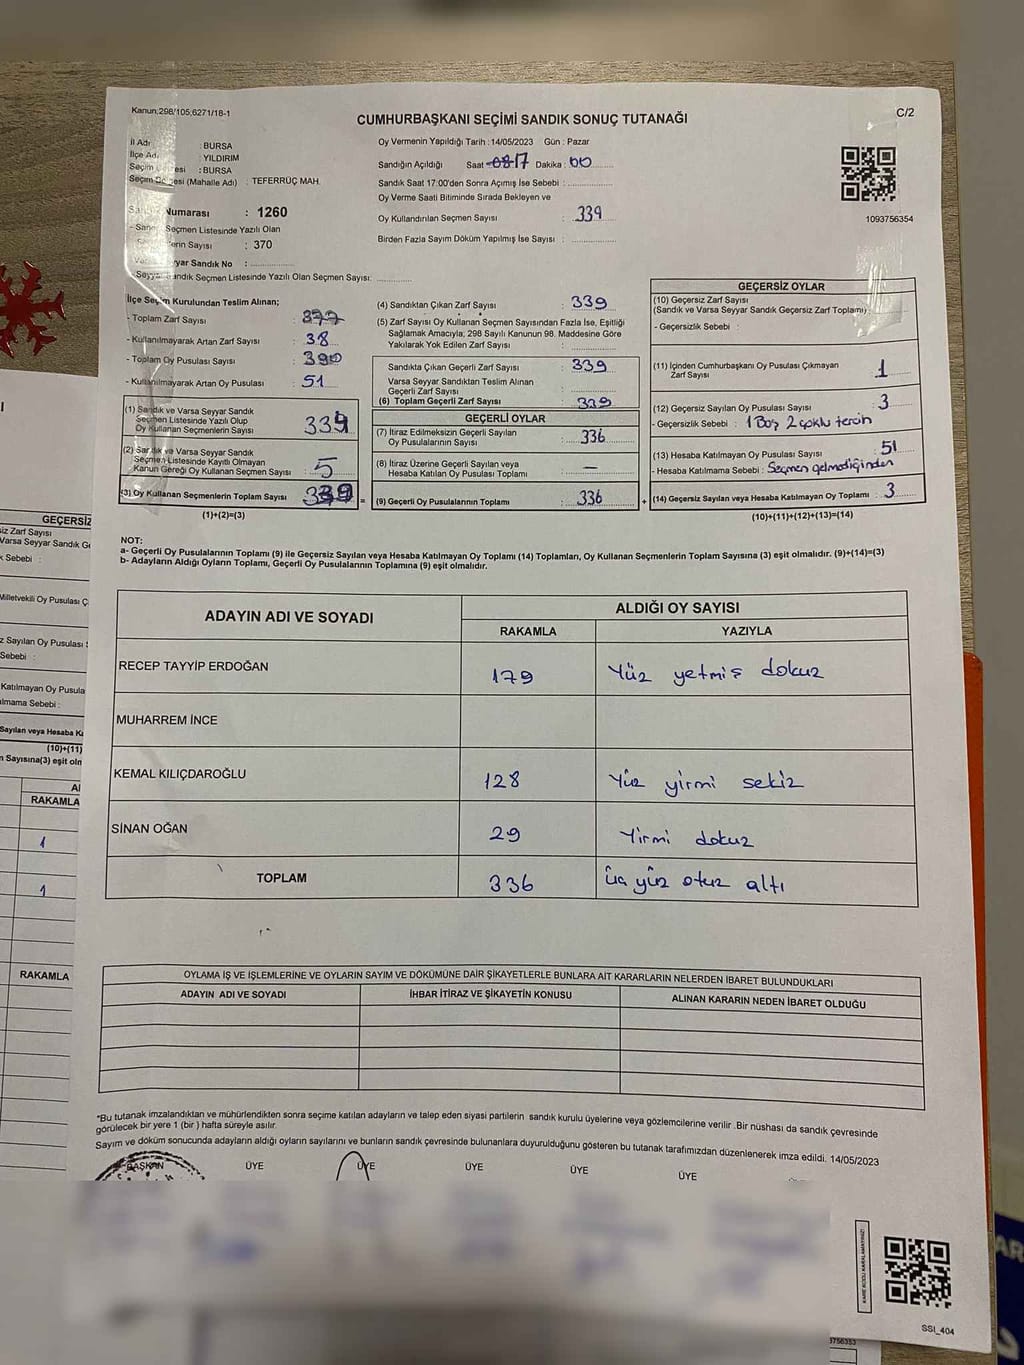 Kanun;298/105;6271/18-1
C/2
CUMHURBAŞKANI SEÇİMİ SANDIK SONUÇ TUTANAĞI
İl Adı : BURSA
İlçe Adı : YILDIRIM
Seçim : BURSA
Seçim (Mahalle Adı) : TEFERRÜÇ MAH.
Numarası : 1260
Seçmen Listesinde Yazılı Olan
Sayısı : 370
Sandık No :
Sandık Seçmen Listesinde Yazılı Olan Seçmen Sayısı:
Oy Vermenin Yapıldığı Tarih : 14/05/2023 Gün : Pazar
Sandığın Açıldığı Saat 17 Dakika : 00
Sandık Saat 17:00'den Sonra Açımış İse Sebebi :
Oy Verme Saati Bitiminde Sırada Bekleyen ve
Oy Kullandırılan Seçmen Sayısı : 339
Birden Fazla Sayım Döküm Yapılmış İse Sayısı :
1093756354
İlçe Seçim Kurulundan Teslim Alınan;
- Toplam Zarf Sayısı :
- Kullanılmayarak Artan Zarf Sayısı : 38
- Toplam Oy Pusulası Sayısı : 390
- Kullanılmayarak Artan Oy Pusulası : 51
(1) Sandık ve Varsa Seyyar Sandık
Seçmen Listesinde Yazılı Olup
Oy Kullanan Seçmenlerin Sayısı : 334
(2) Sandık ve Varsa Seyyar Sandık
Seçmen Listesinde Kayıtlı Olmayan
Kanun Gereği Oy Kullanan Seçmen Sayısı : 5
(3) Oy Kullanan Seçmenlerin Toplam Sayısı : 339 =
(1)+(2)=(3)
(4) Sandıktan Çıkan Zarf Sayısı : 339
(5) Zarf Sayısı Oy Kullanan Seçmen Sayısından Fazla İse, Eşitliği
Sağlamak Amacıyla; 298 Sayılı Kanunun 98. Maddesine Göre
Yakılarak Yok Edilen Zarf Sayısı :
Sandıkta Çıkan Geçerli Zarf Sayısı : 339
Varsa Seyyar Sandıktan Teslim Alınan
Geçerli Zarf Sayısı :
(6) Toplam Geçerli Zarf Sayısı : 339
GEÇERLİ OYLAR
(7) İtiraz Edilmeksizin Geçerli Sayılan
Oy Pusulalarının Sayısı : 336
(8) İtiraz Üzerine Geçerli Sayılan veya
Hesaba Katılan Oy Pusulası Toplamı : —
(9) Geçerli Oy Pusulalarının Toplamı : 336 +
GEÇERSİZ OYLAR
(10) Geçersiz Zarf Sayısı
(Sandık ve Varsa Seyyar Sandık Geçersiz Zarf Toplamı) :
- Geçersizlik Sebebi :
(11) İçinden Cumhurbaşkanı Oy Pusulası Çıkmayan
Zarf Sayısı : 1
(12) Geçersiz Sayılan Oy Pusulası Sayısı : 3
- Geçersizlik Sebebi : 1 Boş 2 çoklu tercih
(13) Hesaba Katılmayan Oy Pusulası Sayısı : 51
- Hesaba Katılmama Sebebi : Seçmen gelmediğinden
(14) Geçersiz Sayılan veya Hesaba Katılmayan Oy Toplamı : 3
(10)+(11)+(12)+(13)=(14)
NOT:
a- Geçerli Oy Pusulalarının Toplamı (9) ile Geçersiz Sayılan veya Hesaba Katılmayan Oy Toplamı (14) Toplamları, Oy Kullanan Seçmenlerin Toplam Sayısına (3) eşit olmalıdır. (9)+(14)=(3)
b- Adayların Aldığı Oyların Toplamı, Geçerli Oy Pusulalarının Toplamına (9) eşit olmalıdır.
ADAYIN ADI VE SOYADI
ALDIĞI OY SAYISI
RAKAMLA YAZIYLA
RECEP TAYYİP ERDOĞAN 179 Yüz yetmiş dokuz
MUHARREM İNCE
KEMAL KILIÇDAROĞLU 128 Yüz yirmi sekiz
SİNAN OĞAN 29 Yirmi dokuz
TOPLAM 336 üç yüz otuz altı
OYLAMA İŞ VE İŞLEMLERİNE VE OYLARIN SAYIM VE DÖKÜMÜNE DAİR ŞİKAYETLERLE BUNLARA AİT KARARLARIN NELERDEN İBARET BULUNDUKLARI
ADAYIN ADI VE SOYADI İHBAR İTİRAZ VE ŞİKAYETİN KONUSU ALINAN KARARIN NEDEN İBARET OLDUĞU
*Bu tutanak imzalandıktan ve mühürlendikten sonra seçime katılan adayların ve talep eden siyasi partilerin sandık kurulu üyelerine veya gözlemcilerine verilir .Bir nüshası da sandık çevresinde
görülecek bir yere 1 (bir ) hafta süreyle asılır.
Sayım ve döküm sonucunda adayların aldığı oyların sayılarını ve bunların sandık çevresinde bulunanlara duyurulduğunu gösteren bu tutanak tarafımızdan düzenlenerek imza edildi. 14/05/2023
BAŞKAN ÜYE ÜYE ÜYE ÜYE ÜYE
KARE KODU KARALAMAYINIZ!
SSI_404
GEÇERSİZ
Zarf Sayısı
Varsa Seyyar Sandık
Sebebi :
Milletvekili Oy Pusulası
Sayılan Oy Pusulası
Sebebi :
Katılmayan Oy Pusula
Sebebi :
Sayılan veya Hesaba
(10)+(11)
Sayısına(3) eşit
RAKAMLA
1
1
RAKAMLA